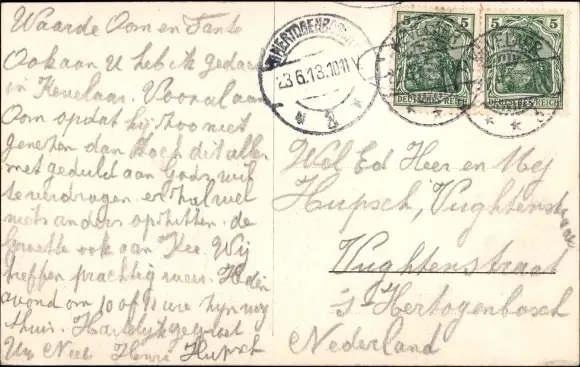 Waarde Oom en Tante
Ook aan U heb ik gedach
in Kevelaar. Vooral aan
Oom opdat hij zoo niet
genezen dan toch dit alles
met geduld aan Gods wil
te verdragen. er zal wel
niets anders opzitten. de
Groette ook aan Kee. Wij
treffen prachtig weer.
avond om 10 of 11 ure zijn wij
thuis. Hartelijk gegroet
Uw Neef Henri Hupsch
23.6.13.10-11V
3
5 5
5 5
KEVELAER
KEVELAER
DEUTSCHES REICH
DEUTSCHES REICH
Wel Ed Heer en Mej
Hupsch, Vughtenstraat
Vughtenstraat
's Hertogenbosch
Nederland